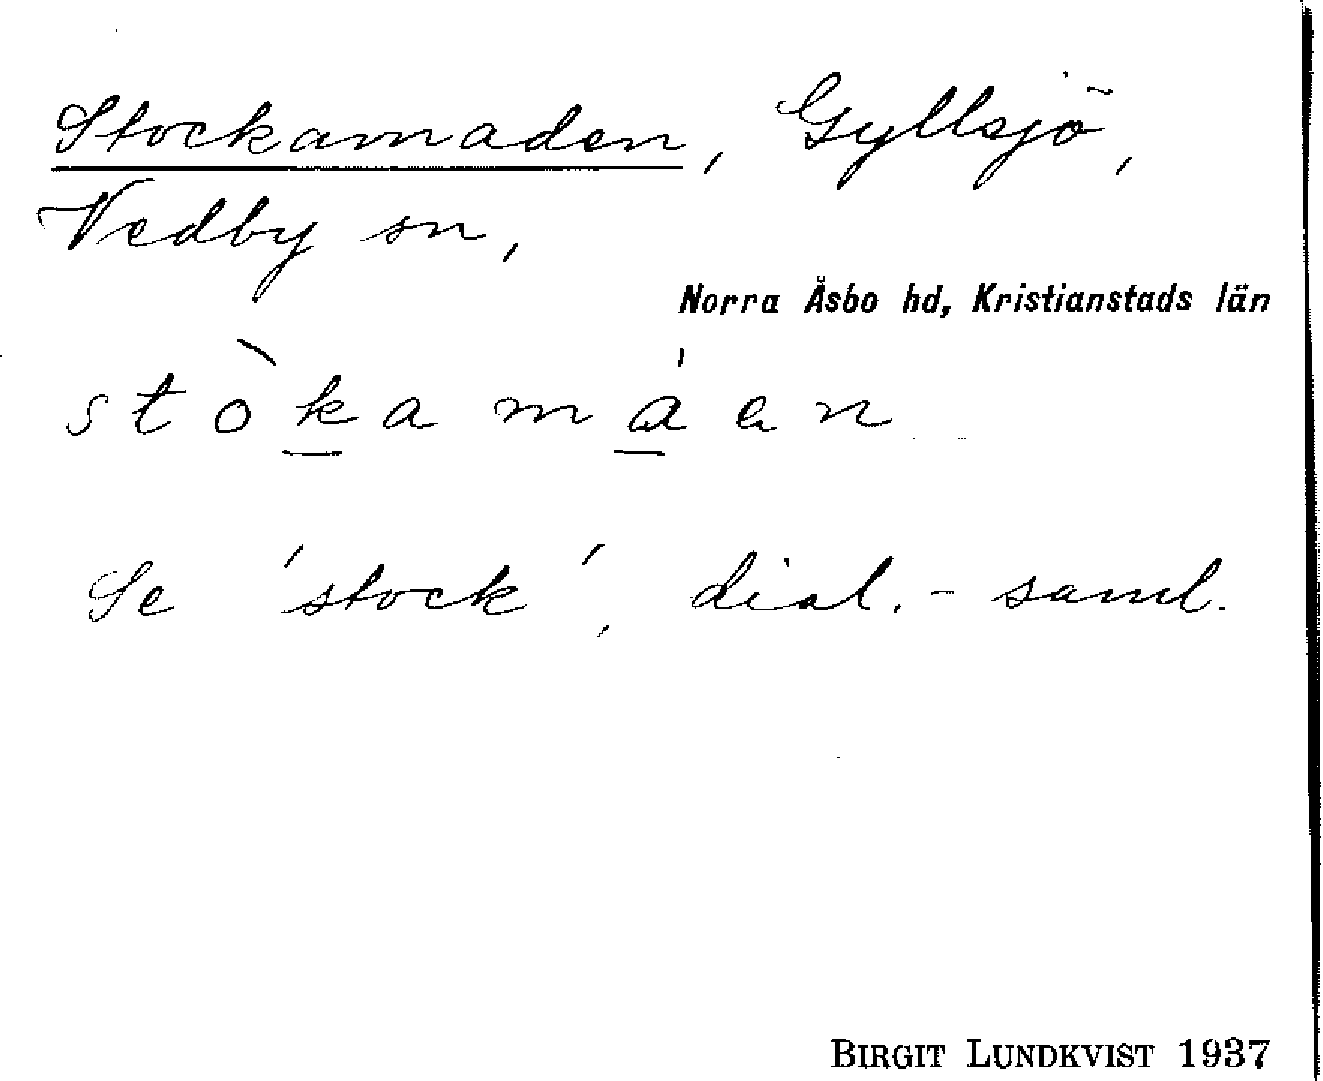 Stockamaden, Gyllsjö,
Vedby sn,
Norra Åsbo hd, Kristianstads län
stòkamáen
Se 'stock', dial.-saml.
BIRGIT LUNDKVIST 1937